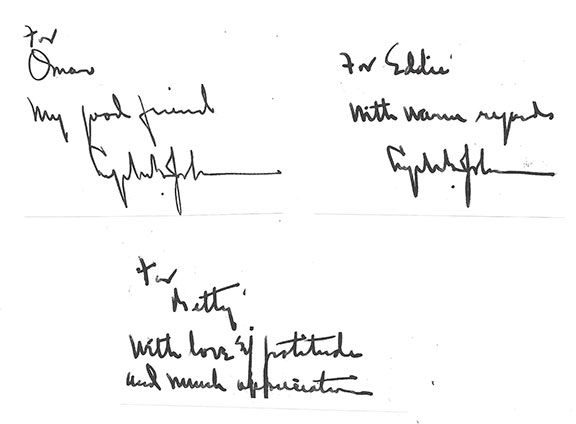 For
Omar
My good friend
Lyndon B. Johnson
For Eddie
With warm regards
Lyndon B. Johnson
For
Betty
With love & gratitude
and much appreciation